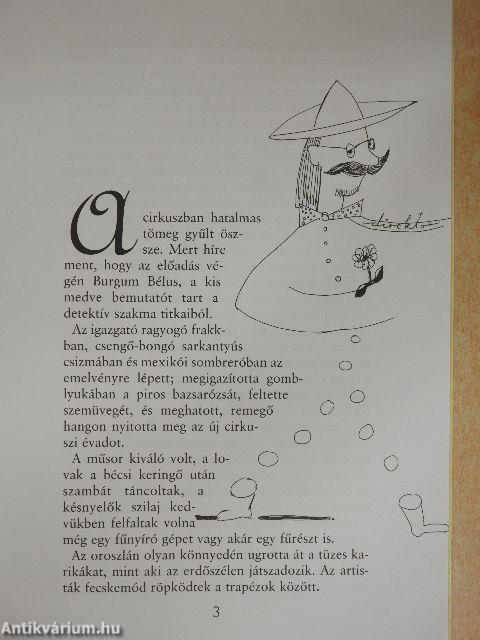 A cirkuszban hatalmas
tömeg gyűlt ösz-
sze. Mert híre
ment, hogy az előadás vé-
gén Burgum Bélus, a kis
medve bemutatót tart a
detektív szakma titkaiból.
Az igazgató ragyogó frakk-
ban, csengő-bongó sarkantyús
csizmában és mexikói sombreróban az
emelvényre lépett; megigazította gomb-
lyukában a piros bazsarózsát, feltette
szemüvegét, és meghatott, remegő
hangon nyitotta meg az új cirku-
szi évadot.
A műsor kiváló volt, a lo-
vak a bécsi keringő után
szambát táncoltak, a
késnyelők szilaj ked-
vükben felfaltak volna
még egy fűnyíró gépet vagy akár egy fűrészt is.
Az oroszlán olyan könnyedén ugrotta át a tüzes ka-
rikákat, mint aki az erdőszélen játszadozik. Az artis-
ták fecskemód röpködtek a trapézok között.
direktor
3
Antikvárium.hu